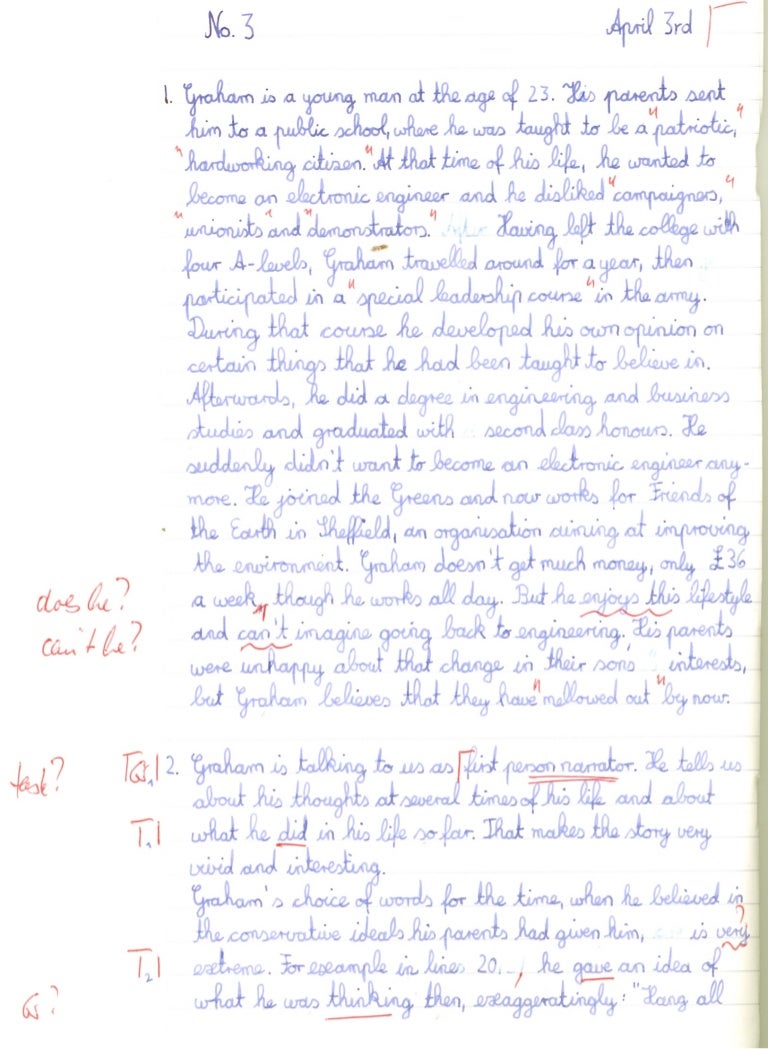 No. 3 April 3rd
1. Graham is a young man at the age of 23. His parents sent
him to a public school, where he was taught to be a "patriotic,"
"hardworking citizen." At that time of his life, he wanted to
become an electronic engineer and he disliked "campaigners,"
"unionists" and "demonstrators." Having left the college with
four A-levels, Graham travelled around for a year, then
participated in a "special leadership course" in the army.
During that course he developed his own opinion on
certain things that he had been taught to believe in.
Afterwards, he did a degree in engineering and business
studies and graduated with second class honours. He
suddenly didn't want to become an electronic engineer any-
more. He joined the Greens and now works for Friends of
the Earth in Sheffield, an organisation aiming at improving
the environment. Graham doesn't get much money, only £36
does he? a week, though he works all day. But he enjoys this lifestyle
can't he? and can't imagine going back to engineering. His parents
were unhappy about that change in their sons interests,
but Graham believes that they have "mellowed out" by now.
task? 2. Graham is talking to us as first person narrator. He tells us
about his thoughts at several times of his life and about
T1 what he did in his life so far. That makes the story very
vivid and interesting.
Graham's choice of words for the time, when he believed in
the conservative ideals his parents had given him, is very ?
T2 extreme. For example in lines 20.., he gave an idea of
G? what he was thinking then, exaggeratingly: "Hang all